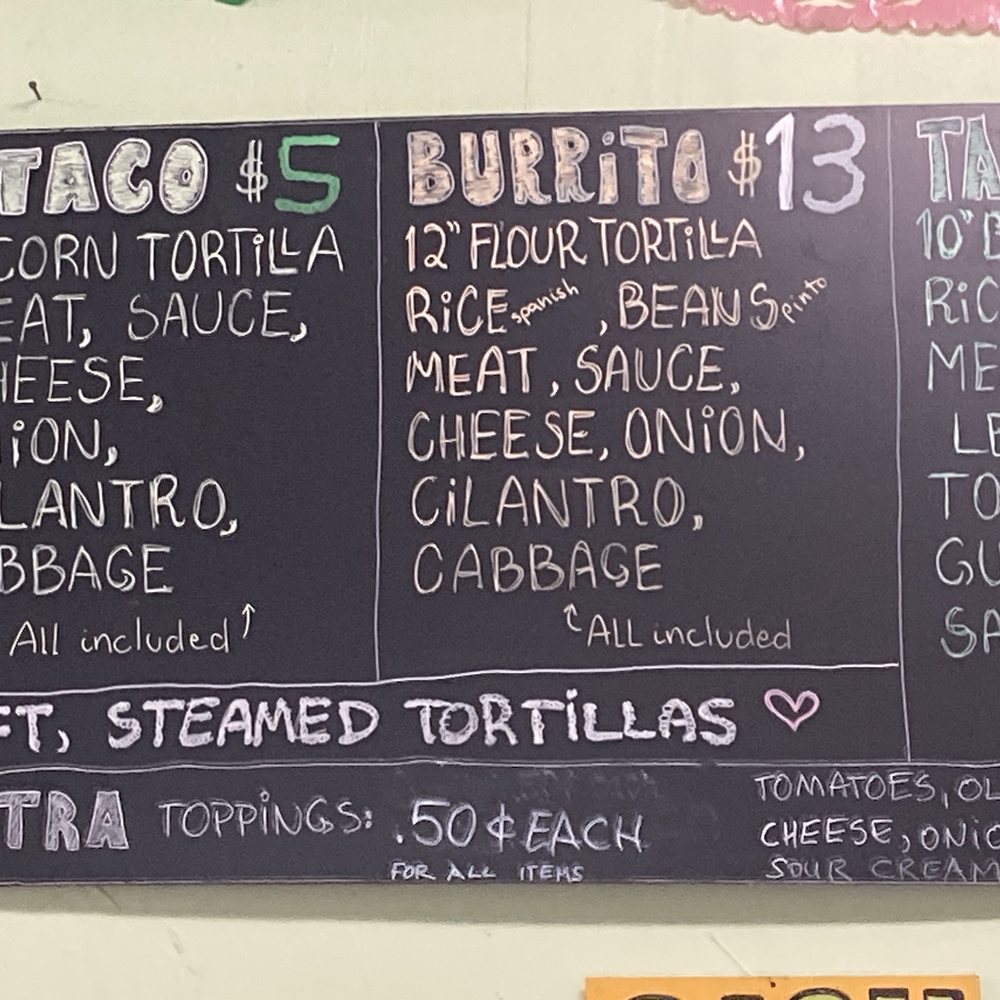 TACO $5
CORN TORTiLLA
EAT, SAUCE,
HEESE,
NiON,
LANTRO,
BBAGE
All included
BURRiTO $13
12" FLOUR TORTiLLA
RiCE spanish, BEANS pinto
MEAT, SAUCE,
CHEESE, ONiON,
CiLANTRO,
CABBAGE
ALL included
TA
10"
RiC
ME
LE
TO
GU
SA
FT, STEAMED TORTiLLAS
TRA TOPPiNGS: .50¢ EACH
FOR ALL ITEMS
TOMATOES, OL
CHEESE, ONiO
SOUR CREAM